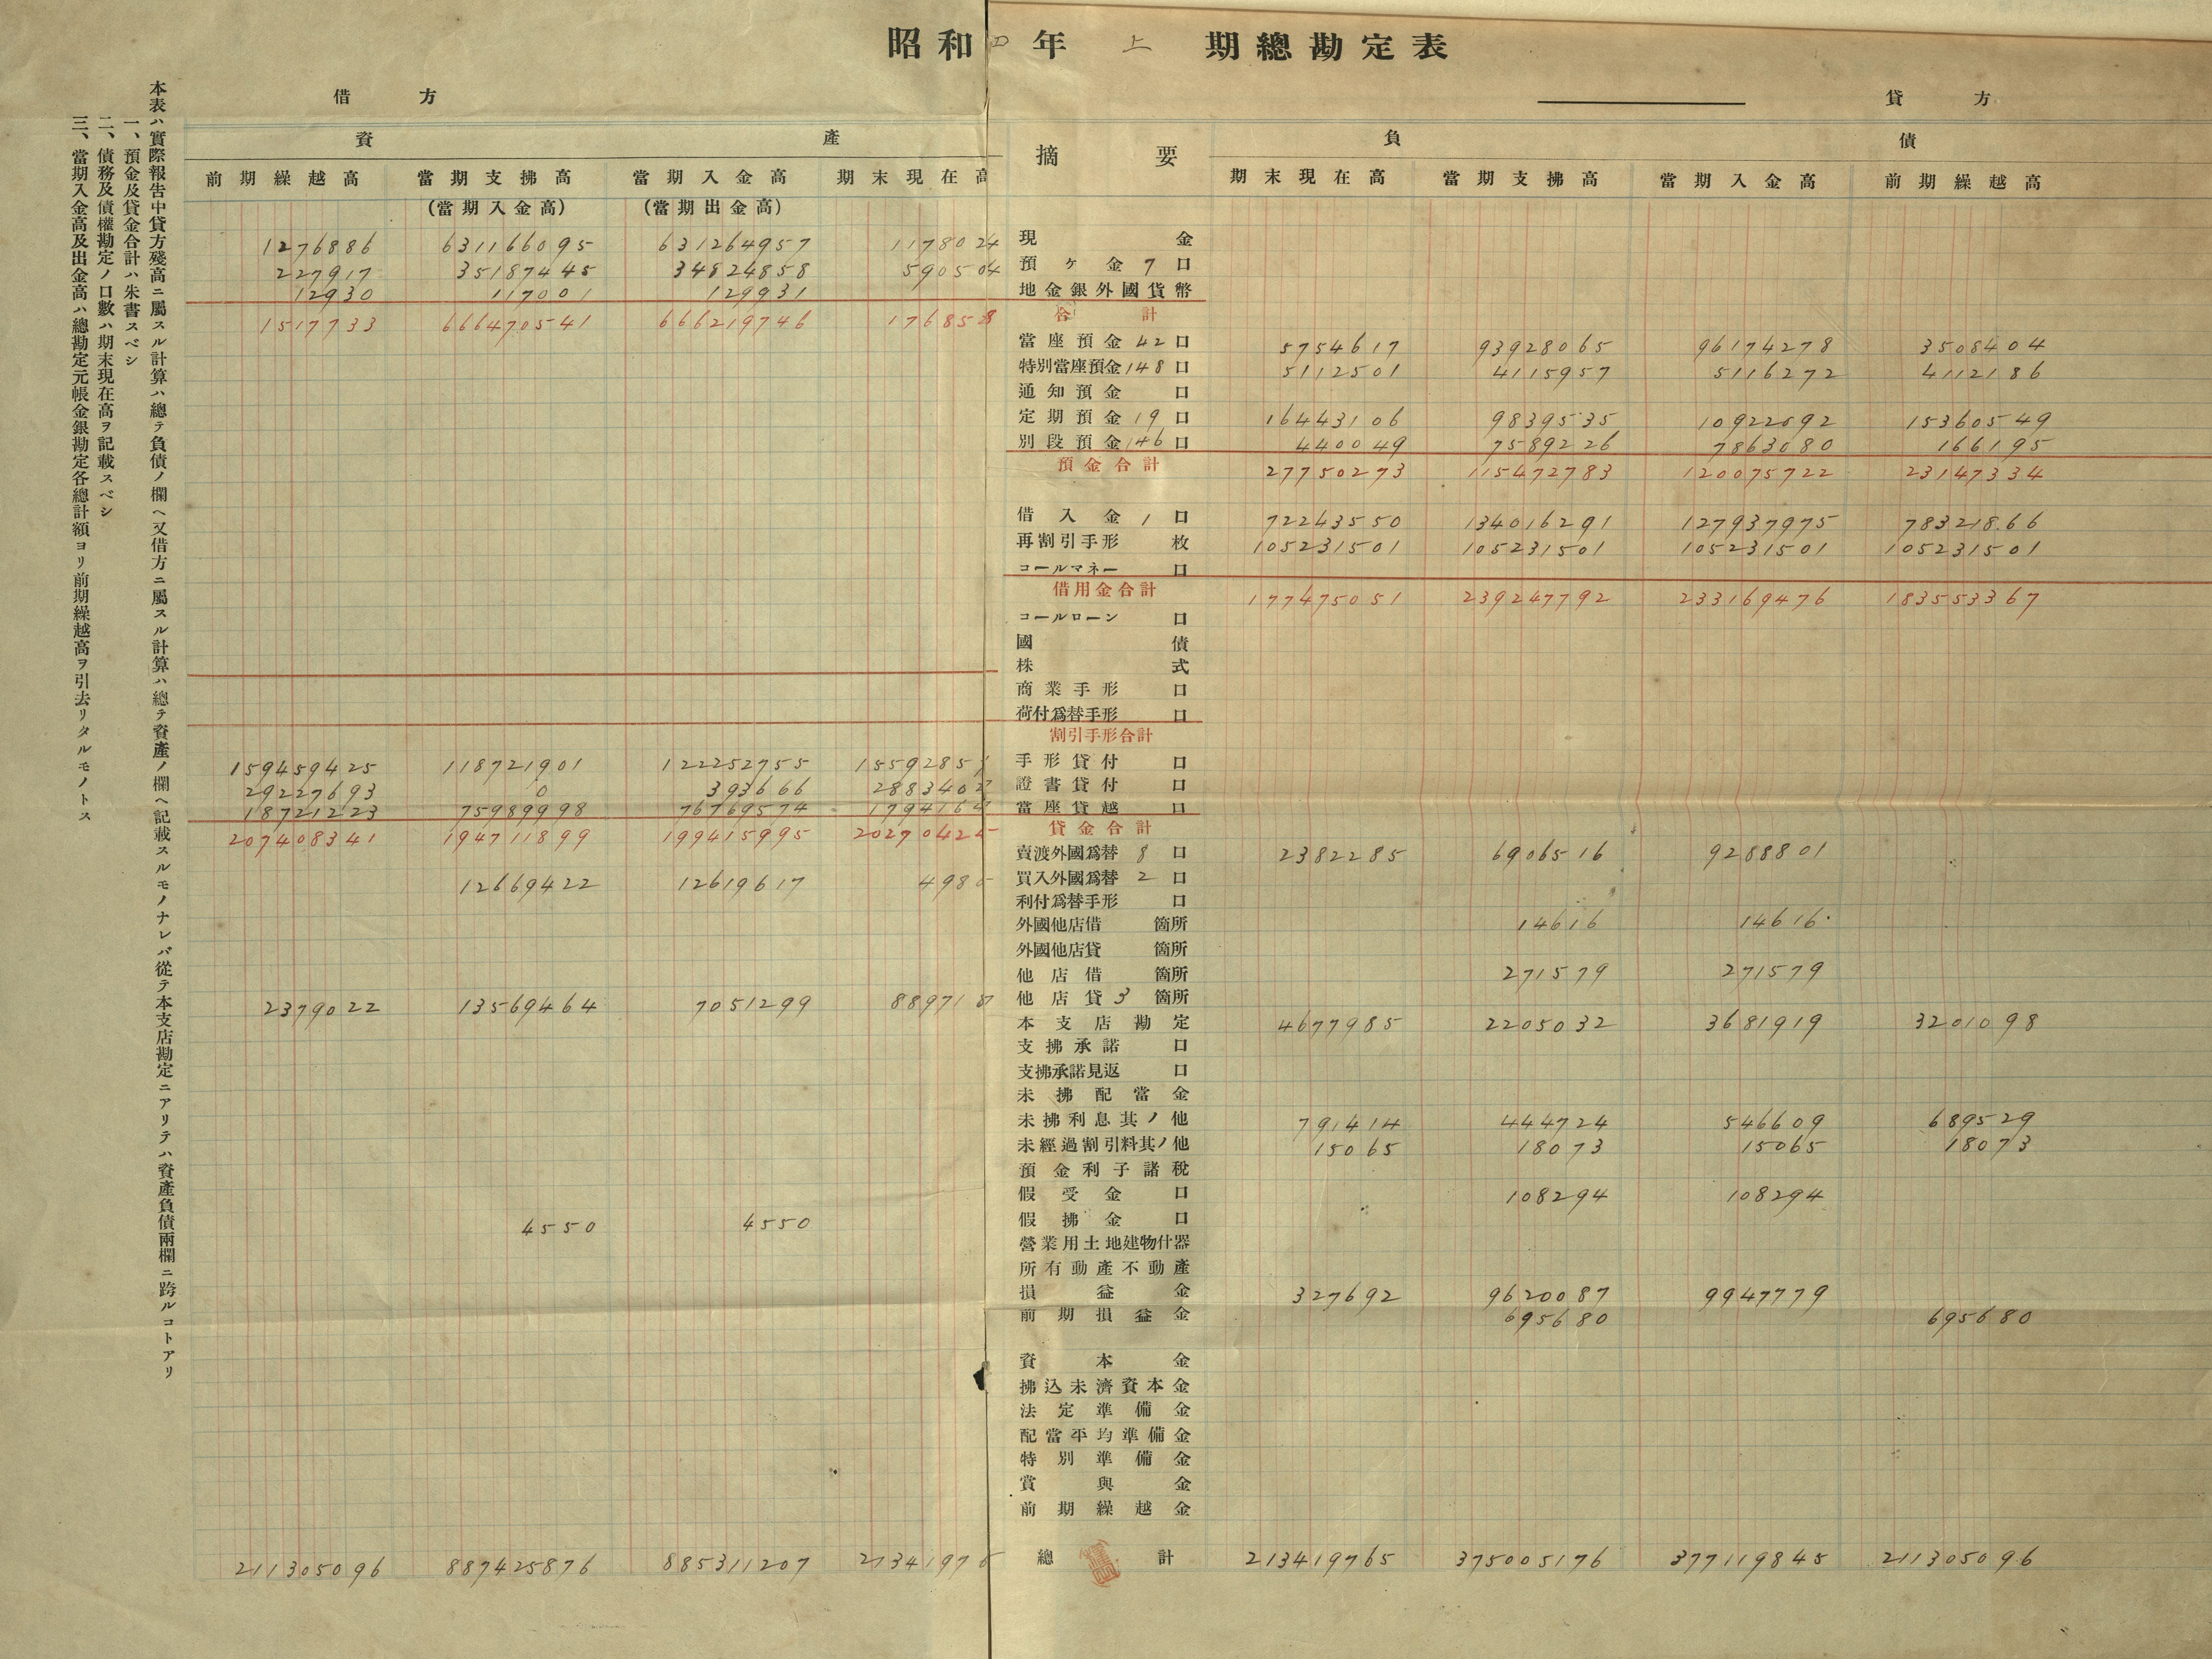 昭和四年 上 期總勘定表
借方 貸方
資產 摘要 負債
前期繰越高 當期支拂高 當期入金高 期末現在高 期末現在高 當期支拂高 當期入金高 前期繰越高
(當期入金高) (當期出金高)
1276886 631166095 631264957 1178024 現金
227917 35187445 34824858 590504 預ヶ金 7 口
12930 117001 129931 地金銀外國貨幣
1517733 666470541 666219746 1768528 合計
當座預金 42 口 5754617 93928065 96174278 3508404
特別當座預金 148 口 5112501 4115957 5116272 4112186
通知預金 口
定期預金 19 口 16443106 9839535 10922092 15360549
別段預金 146 口 440049 7589226 7863080 166195
預金合計 27750273 115472783 120075722 23147334
借入金 1 口 72243550 134016291 127937975 78321866
再割引手形 枚 105231501 105231501 105231501 105231501
コールマネー 口
借用金合計 177475051 239247792 233169476 183553367
コールローン 口
國債
株式
商業手形 口
荷付爲替手形 口
割引手形合計
159459425 118721901 122252755 手形貸付 口
29227693 0 393666 證書貸付 口
18721223 75989998 76769574 當座貸越 口
207408341 194711899 199415995 貸金合計
賣渡外國爲替 8 口 2382285 6906516 9288801
12669422 12619617 買入外國爲替 2 口
利付爲替手形 口
外國他店借 箇所 14616 14616
外國他店貸 箇所
他店借 箇所 271579 271579
2379022 13569464 7051299 8897187 他店貸 3 箇所
本支店勘定 4677985 2205032 3681919 3201098
支拂承諾 口
支拂承諾見返 口
未拂配當金
未拂利息其ノ他 791414 444724 546609 689529
未經過割引料其ノ他 15065 18073 15065 18073
預金利子諸稅
假受金 口 108294 108294
4550 4550 假拂金 口
營業用土地建物什器
所有動產不動產
損益金 327692 9620087 9947779
前期損益金 695680 695680
資本金
拂込未濟資本金
法定準備金
配當平均準備金
特別準備金
賞與金
前期繰越金
211305096 887425876 885311207 總計 213419765 375005176 377119845 211305096
本表ハ實際報告中貸方殘高ニ屬スル計算ハ總テ負債ノ欄ヘ又借方ニ屬スル計算ハ總テ資產ノ欄ヘ記載スルモノナレバ從テ本支店勘定ニアリテハ資產負債兩欄ニ跨ルコトアリ
一、預金及貸金合計ハ朱書スベシ
二、債務及債權勘定ノ口數ハ期末現在高ヲ記載スベシ
三、當期入金高及出金高ハ總勘定元帳金銀勘定各總計額ヨリ前期繰越高ヲ引去リタルモノトス